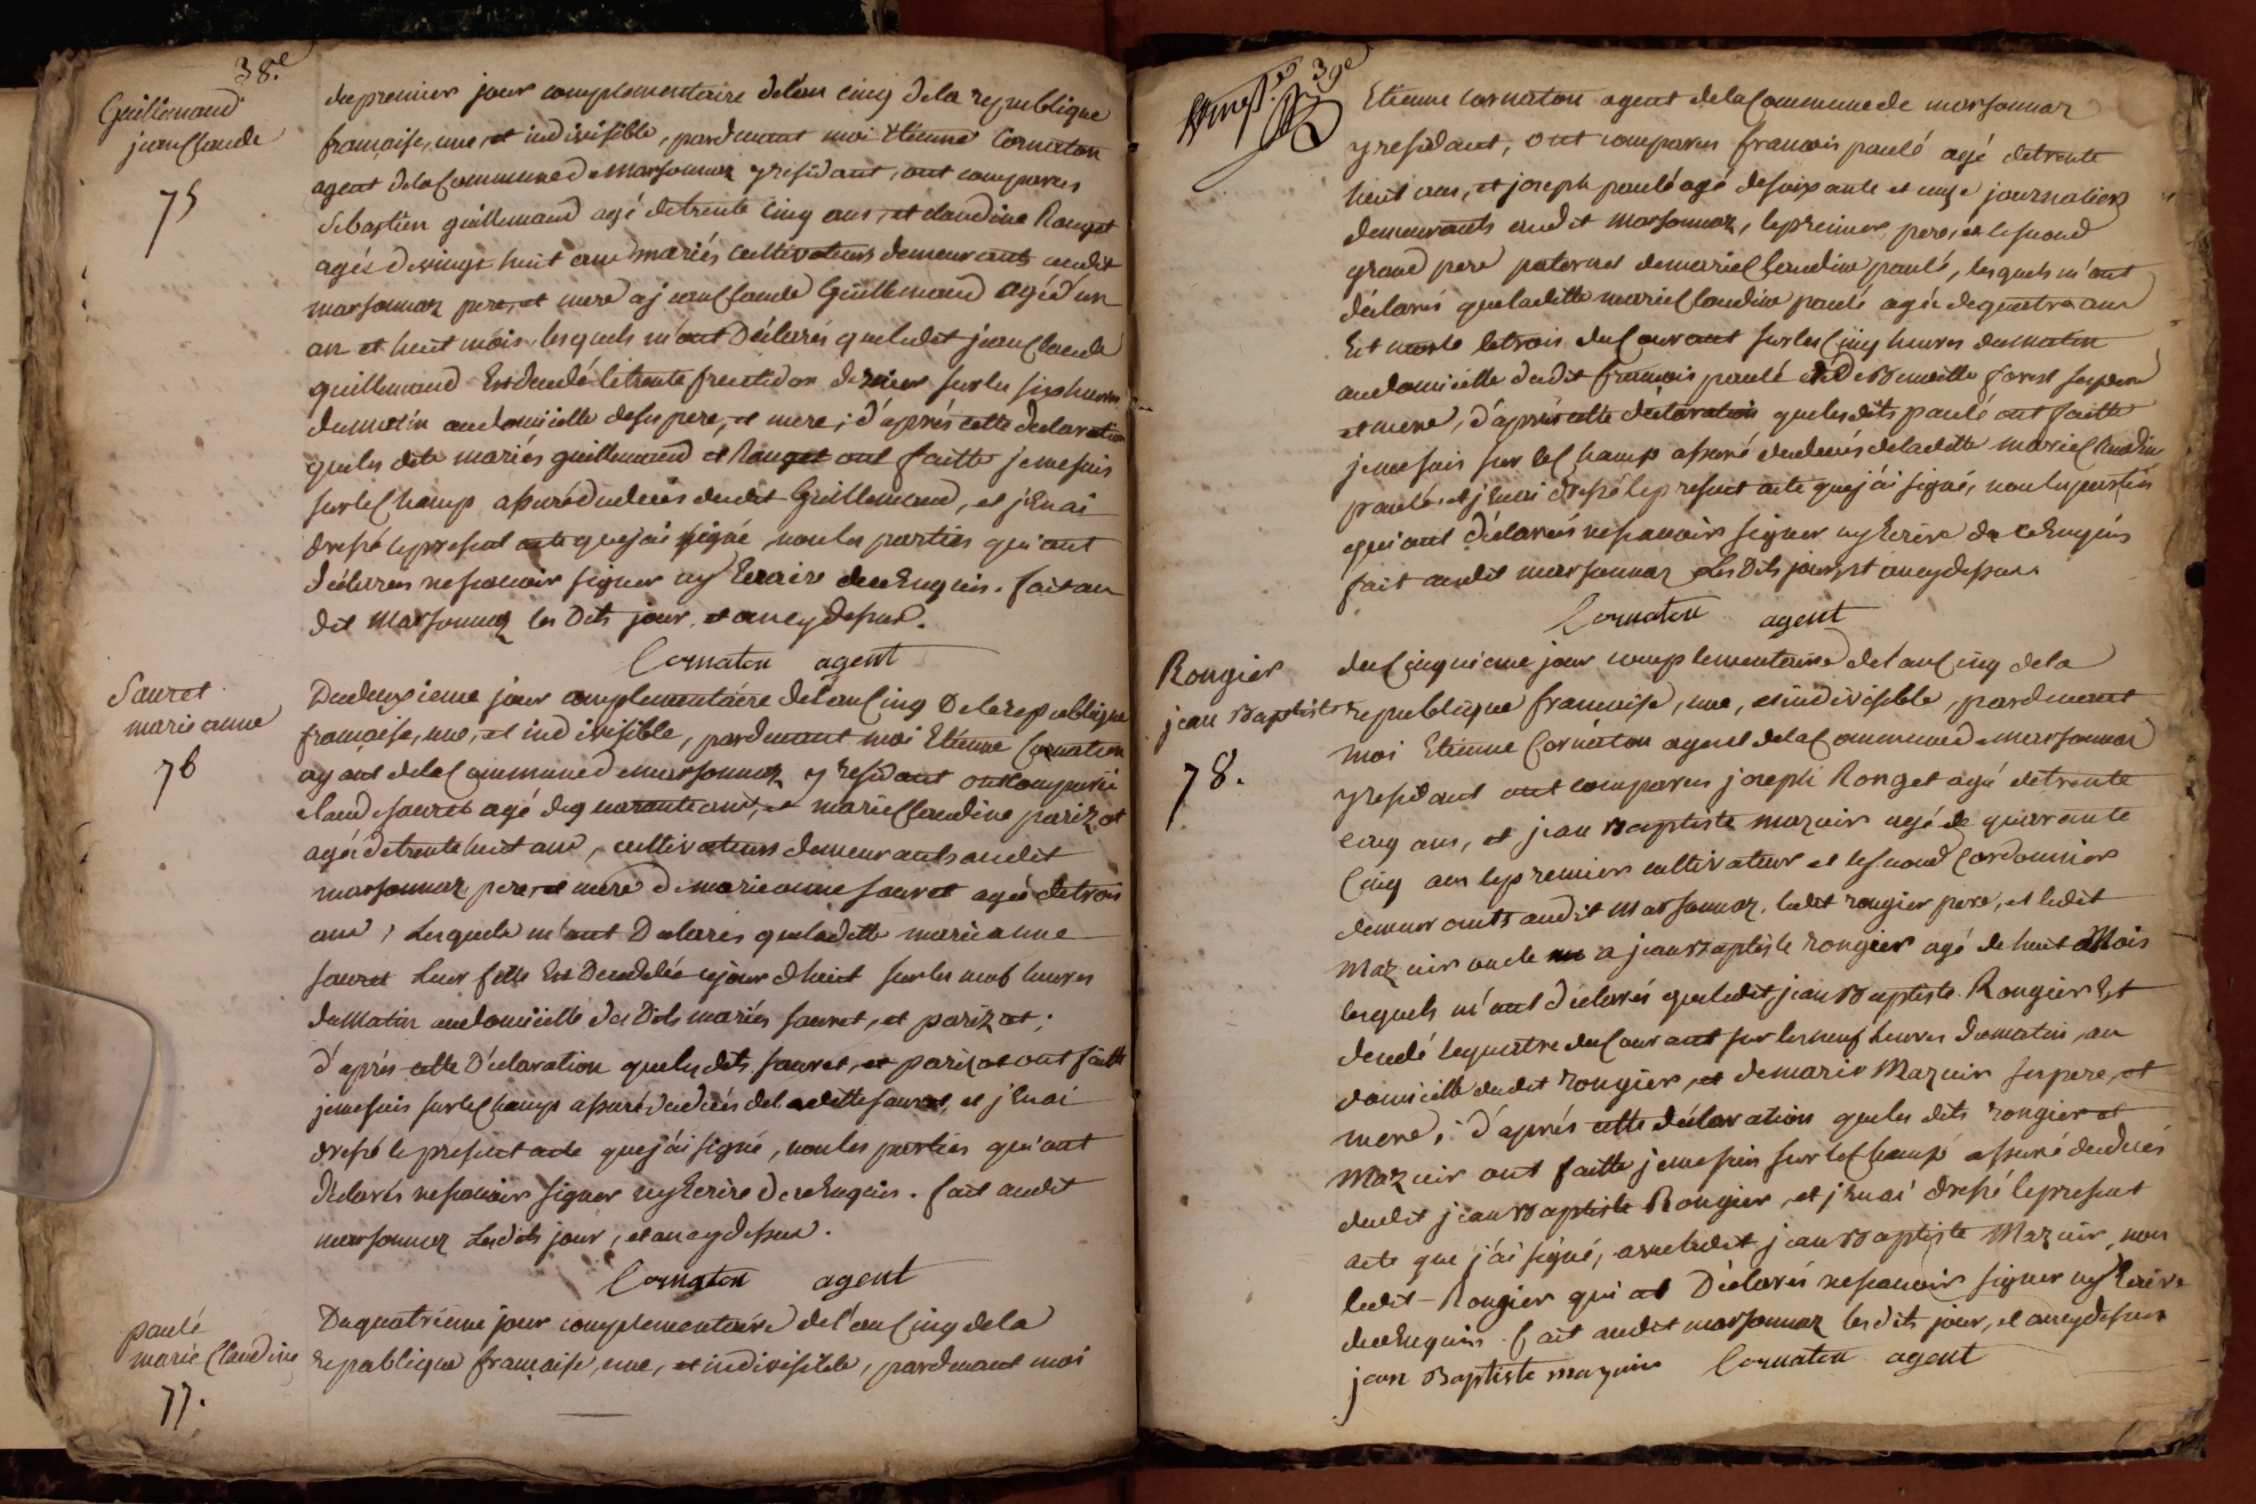 38.e
Guillemaud
jean Claude
75
du premier jour complementaire de l'an cinq de la republique
francaise, une, et indivisible, pardevant moi Etienne Cornaton
agent de la Commune de Marsonnaz y residant, ont comparus
Sebastien guillemaud agé de trente cinq ans, et claudine Ronget
agée de vingt huit ans mariés cultivateurs demeurants audit
marsonnaz pere, et mere a jean Claude Guillemaud agé d'un
an et huit mois, lesquels m'ont Déclarés que ledit jean Claude
guillemaud Est decedé le trente fructidor dernier sur les six heures
du matin au domicille de ses pere, et mere ; d'aprés cette declaration
que les dits mariés guillemaud et Ronget ont faitte je me suis
sur le Champ assuré du decés dudit Guillemaud, et j'En ai
dressé le present acte que j'ai signé non les parties qui ont
déclarés ne scavoir signer ny Ecrire de ce Enquis. fait au
dit Marsonnaz les Dits jour, et an cy dessus.
Cornaton agent
Sauret
marie anne
76
Du deuxieme jour complementaire de l'an Cinq De la republique
francaise, une, et indivisible, pardevant moi Etienne Cornaton
agent de la Commune de marsonnaz y residant ont comparus
claude sauret agé de quarante ans, et marie Claudine parizot
agée de trente huit ans, cultivateurs demeurants audit
marsonnaz pere, et mere de marie anne sauret agée de trois
ans, Lesquels m'ont Declarés que laditte marie anne
sauret Leur fille Est Decedée cejourdhuit sur les neuf heures
du Matin au domicille des Dits mariés sauret, et parizot ;
d'aprés cette Déclaration que les dits sauret, et parizot ont faitte
je me suis sur le Champ assuré du decés de laditte sauret, et j'En ai
dressé le present acte que j'ai signé, non les parties qui ont
déclarés ne scavoir signer ny Ecrire de ce Enquis. fait audit
marsonnaz Les dits jour, et an cy dessus.
Cornaton agent
paulé
marie Claudine
77.
Du quatrième jour complementaire de l'an Cinq de la
republique francaise, une, et indivisible, pardevant moi
39e
Etienne Cornaton agent de la Commune de marsonnaz
y residant, ont comparus francois paulé agé de trente
huit ans, et joseph paulé agé de soixante et onze journaliers
demeurants audit Marsonnaz, le premier pere, et le second
grand pere paternel de marie Claudine paulé, lesquels m'ont
déclarés que laditte marie Claudine paulé agée de quatre ans
Est morte le trois du Courant sur les Cinq heures du matin
au domicille dudit francois paulé et De Benoitte forest ses pere
et mere, d'aprés cette déclaration que les dits paulé ont faitte
je me suis sur le Champ assuré du decés de laditte marie Claudine
paulé, et j'En ai dressé le present acte que j'ai signé, non les parties
qui ont déclarés ne scavoir signer ny Ecrire de ce Enquis
fait audit marsonnaz Les Dits jour, et an cy dessus.
Cornaton agent
Rongier
jean Baptiste
78.
du Cinquieme jour complementaire de l'an Cinq de la
republique francaise, une, et indivisible, pardevant
moi Etienne Cornaton agent de la Commune de marsonnaz
y residant ont comparus joseph Ronget agé de trente
cinq ans, et jean Baptiste mazuir agé de quarante
Cinq ans le premier cultivateur et le second Cordonnier
demeurants audit Marsonnaz, ledit rongier pere, et ledit
Mazuir oncle a jean Baptiste rongier agé de huit Mois
lesquels m'ont déclarés que ledit jean Baptiste Rongier Est
decedé le quatre du Courant sur les neuf heures du matin, au
domicille dudit rongier, et de marie Mazuir ses pere, et
mere ; d'aprés cette déclaration que les dits rongier et
Mazuir ont faitte je me suis sur le Champ assuré du decés
dudit jean Baptiste Rongier, et j'En ai dressé le present
acte que j'ai signé, avec ledit jean Baptiste Mazuir, non
ledit Rongier qui at Déclaré ne scavoir signer ny Ecrire
de ce Enquis. fait audit marsonnaz les dits jour, et an cy dessus
jean Baptiste mazuir Cornaton agent